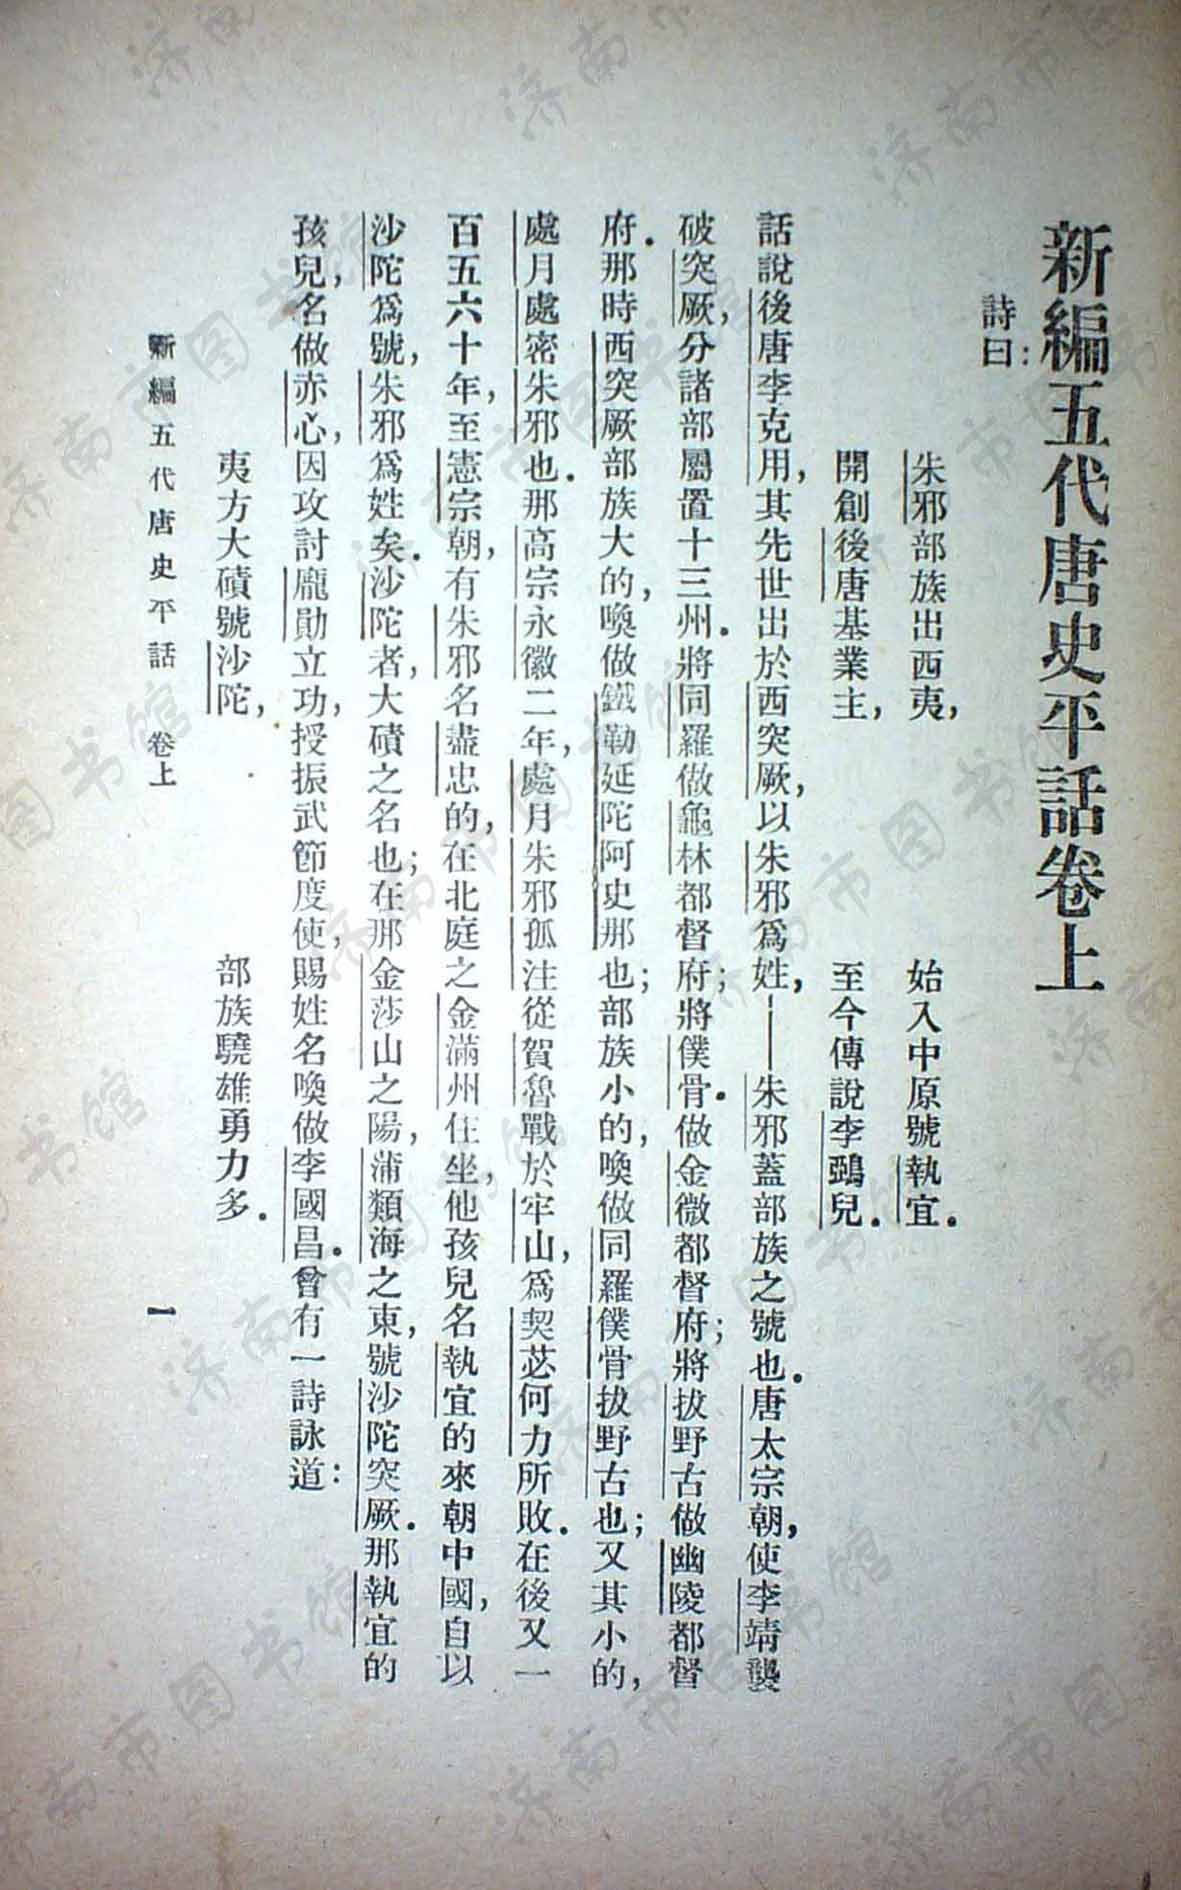 新編五代唐史平話卷上
詩曰：
朱邪部族出西夷，　始入中原號執宜．
開創後唐基業主，　至今傳說李鵶兒．
話說後唐李克用，其先世出於西突厥，以朱邪爲姓，——朱邪蓋部族之號也．唐太宗朝，使李靖襲
破突厥，分諸部屬置十三州．將同羅做龜林都督府；將僕骨．做金微都督府；將拔野古做幽陵都督
府．那時西突厥部族大的，喚做鐵勒延陀阿史那也；部族小的，喚做同羅僕骨拔野古也；又其小的，
處月處密朱邪也．那高宗永徽二年，處月朱邪孤注從賀魯戰於牢山，爲契苾何力所敗．在後又一
百五六十年，至憲宗朝，有朱邪名盡忠的，在北庭之金滿州住坐，他孩兒名執宜的來朝中國，自以
沙陀爲號，朱邪爲姓矣．沙陀者，大磧之名也；在那金莎山之陽，蒲類海之東，號沙陀突厥．那執宜的
孩兒，名做赤心，因攻討龐勛立功，授振武節度使，賜姓名喚做李國昌．曾有一詩詠道：
夷方大磧號沙陀，　部族驍雄勇力多．
新編五代唐史平話　卷上　一
济南市图书馆